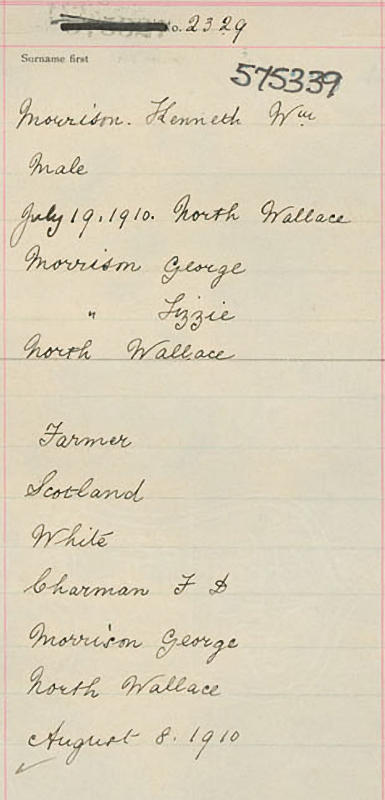 No. 2329
Surname first
575339
Morrison. Kenneth Wm
Male
July 19, 1910. North Wallace
Morrison George
" Lizzie
North Wallace
Farmer
Scotland
White
Charman F D
Morrison George
North Wallace
August 8. 1910